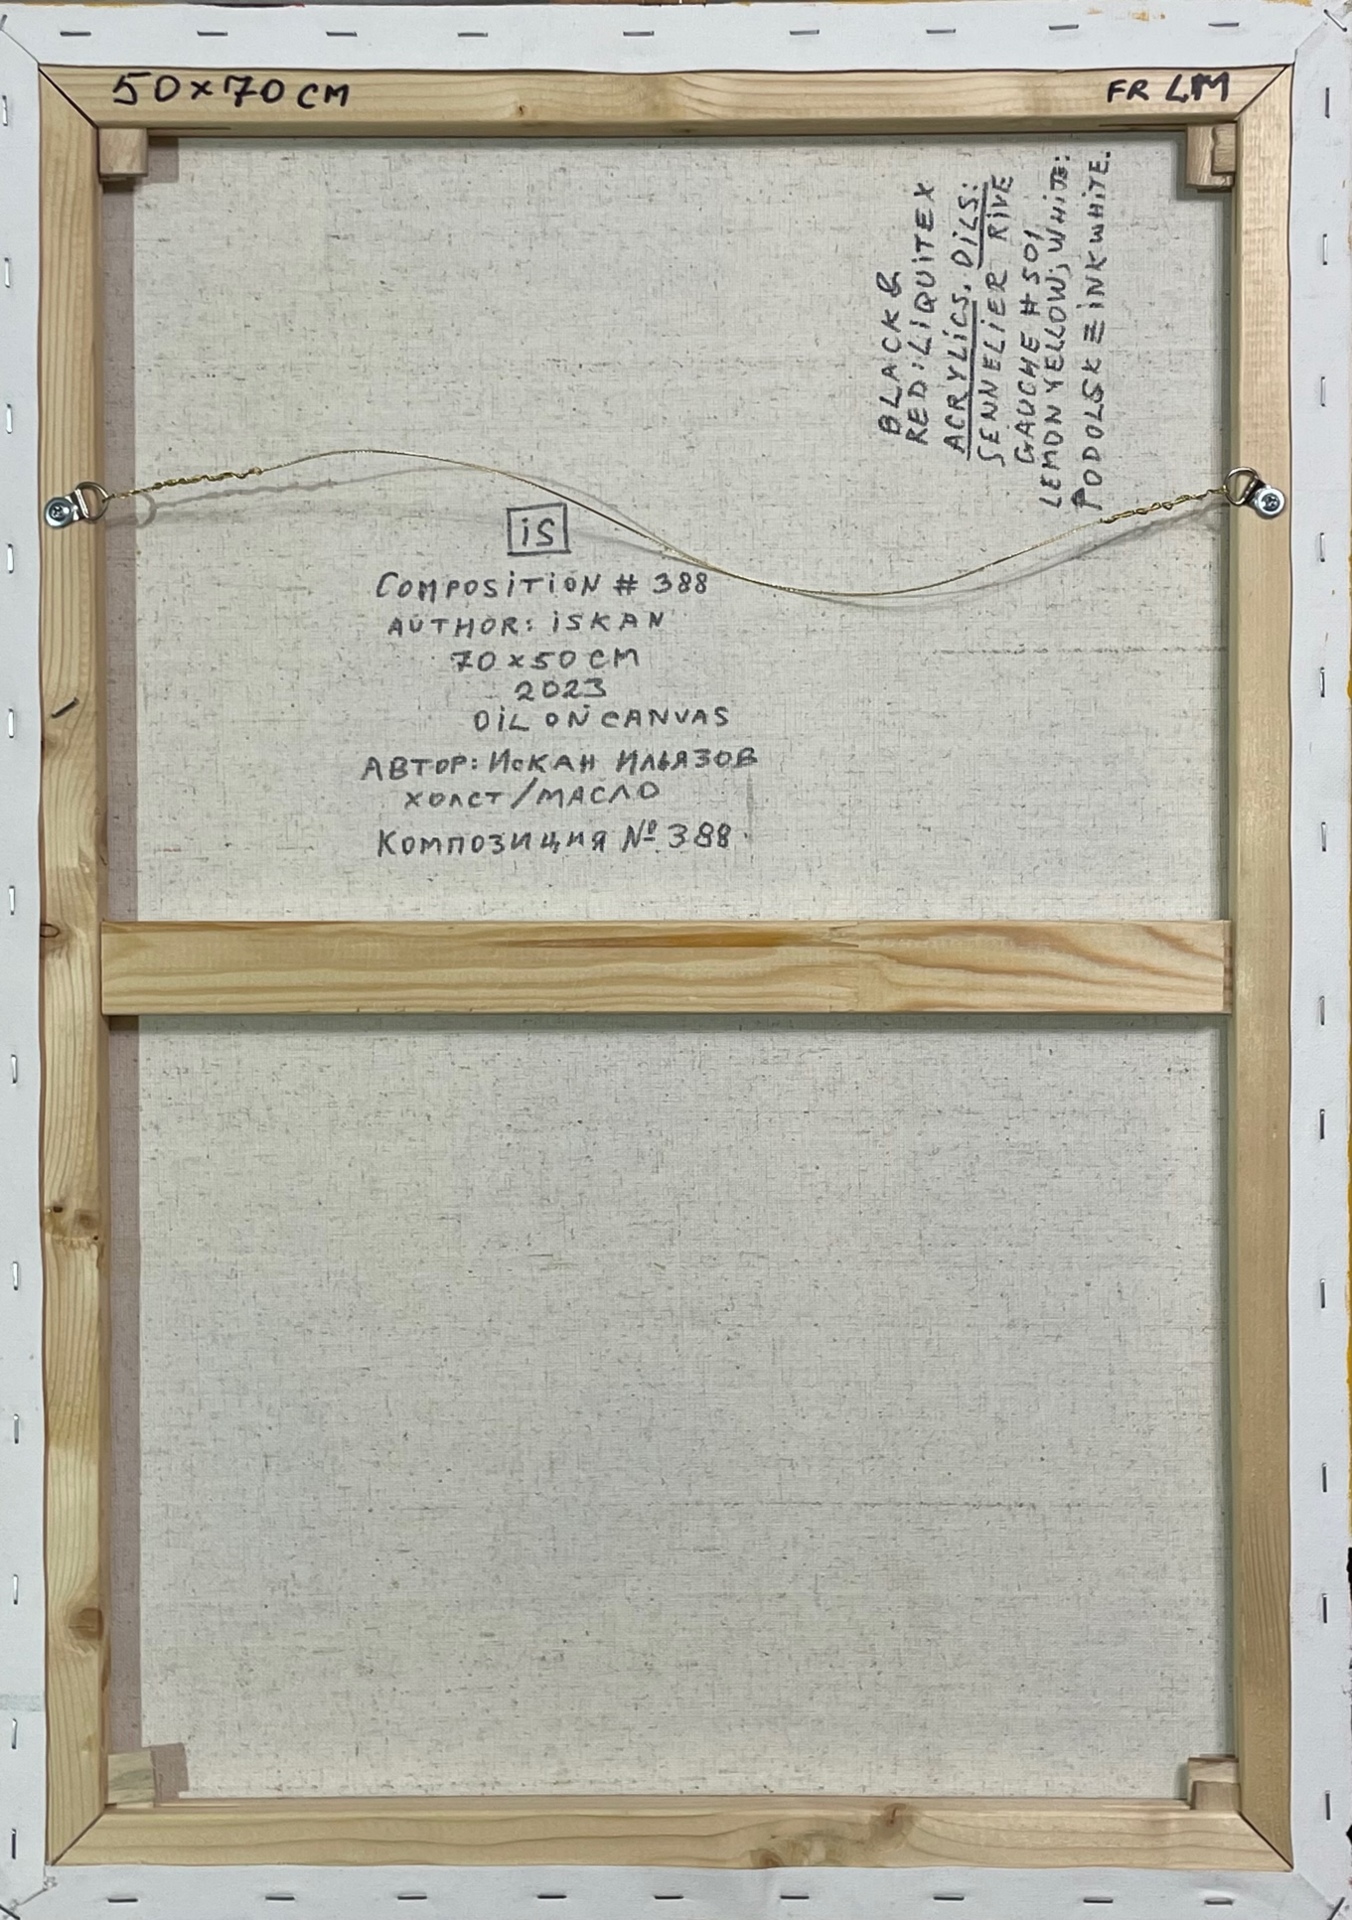 50x70 CM
FR LM
BLACK &
RED: LIQUITEX
ACRYLICS. OILS:
SENNELIER RIVE
GAUCHE #501
LEMON YELLOW; WHITE:
PODOLSK ZINKWHITE.
iS
COMPOSITION # 388
AUTHOR: ISKAN
70x50 CM
2023
OIL ON CANVAS
АВТОР: ИСКАН ИЛЬЯЗОВ
ХОЛСТ/МАСЛО
КОМПОЗИЦИЯ № 388